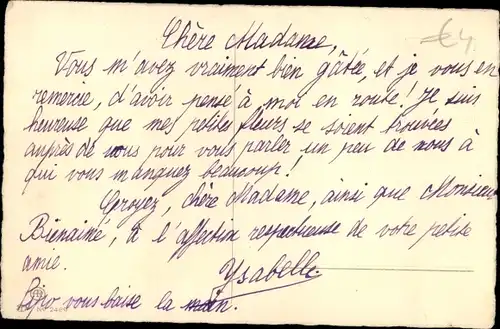 Chère Madame,
€4
Vous m'avez vraiment bien gâtée, et je vous en
remercie, d'avoir pensé à moi en route! Je suis
heureuse que mes petites fleurs se soient trouvées
auprès de vous pour vous parler un peu de nous à
qui vous manquez beaucoup!
Croyez, chère Madame, ainsi que Monsieur
Bienaimé, à l'affection respectueuse de votre petite
amie.
Ysabelle
vous baise la main.